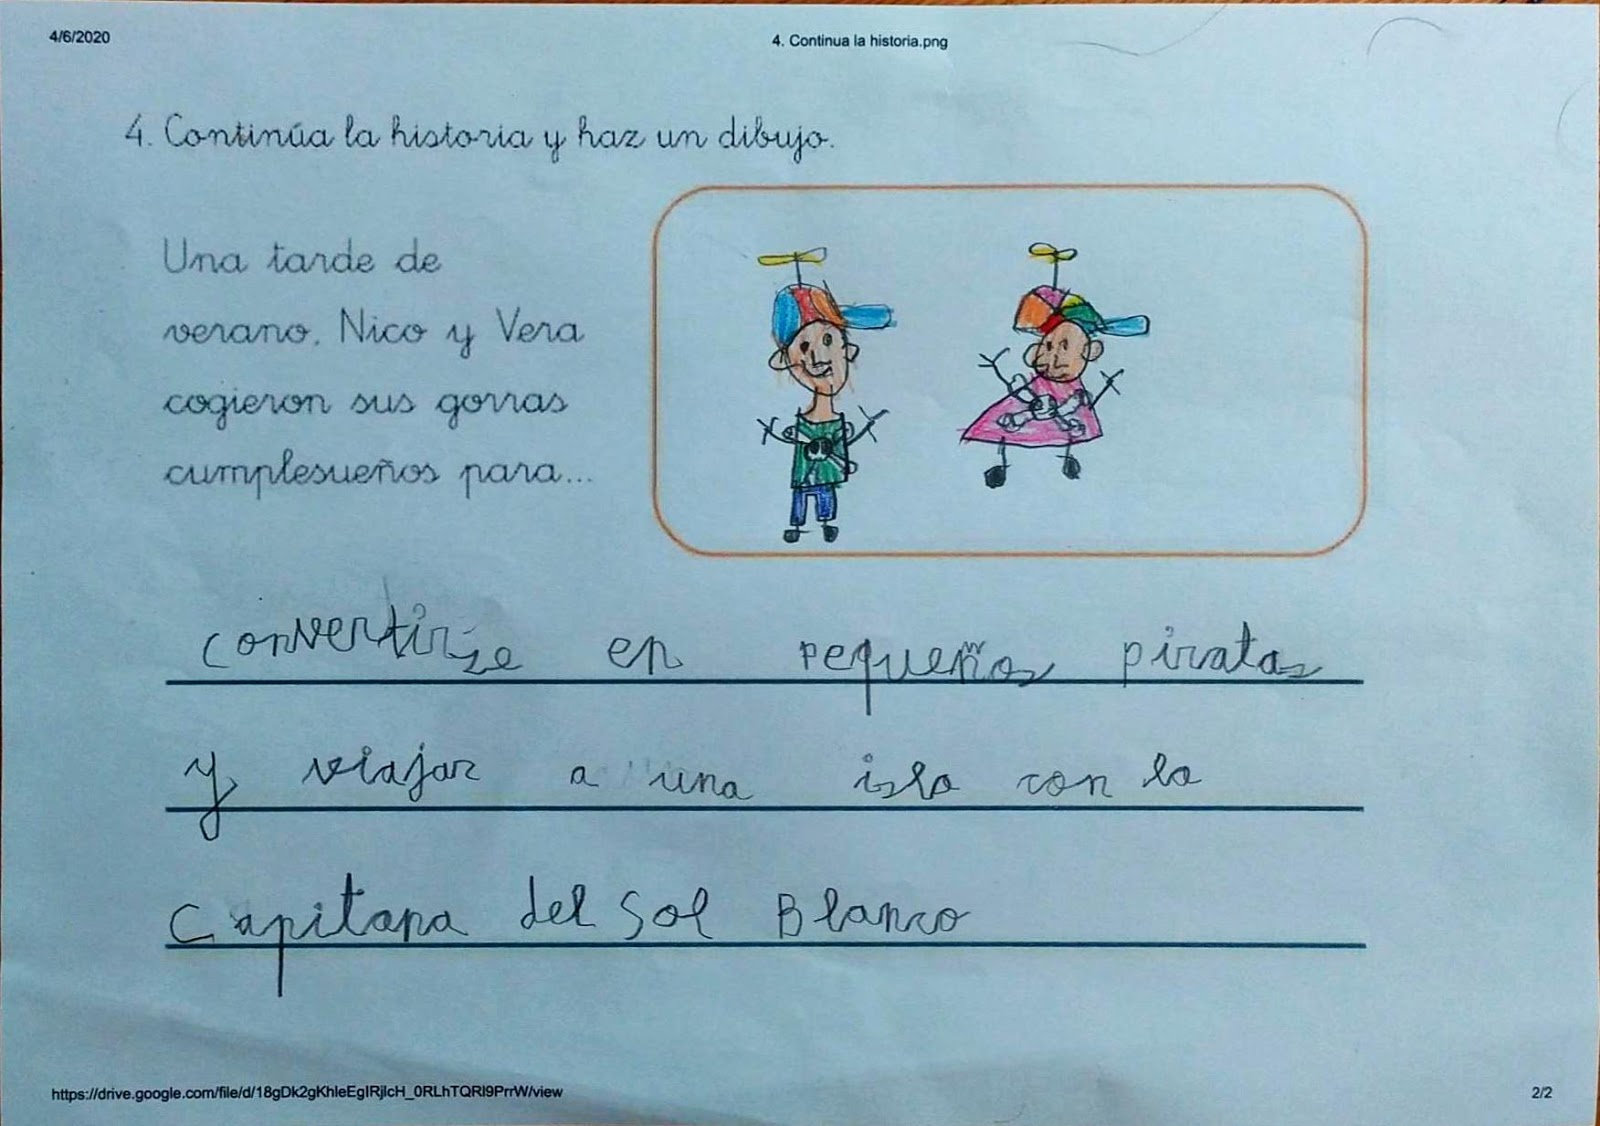 4/6/2020
4. Continua la historia.png
4. Continúa la historia y haz un dibujo.
Una tarde de
verano, Nico y Vera
cogieron sus gorras
cumplesueños para...
convertirse en pequeños piratas
y viajar a una isla con la
Capitana del Sol Blanco
https://drive.google.com/file/d/18gDk2gKhleEgIRjlcH_0RLhTQRl9PrrW/view
2/2